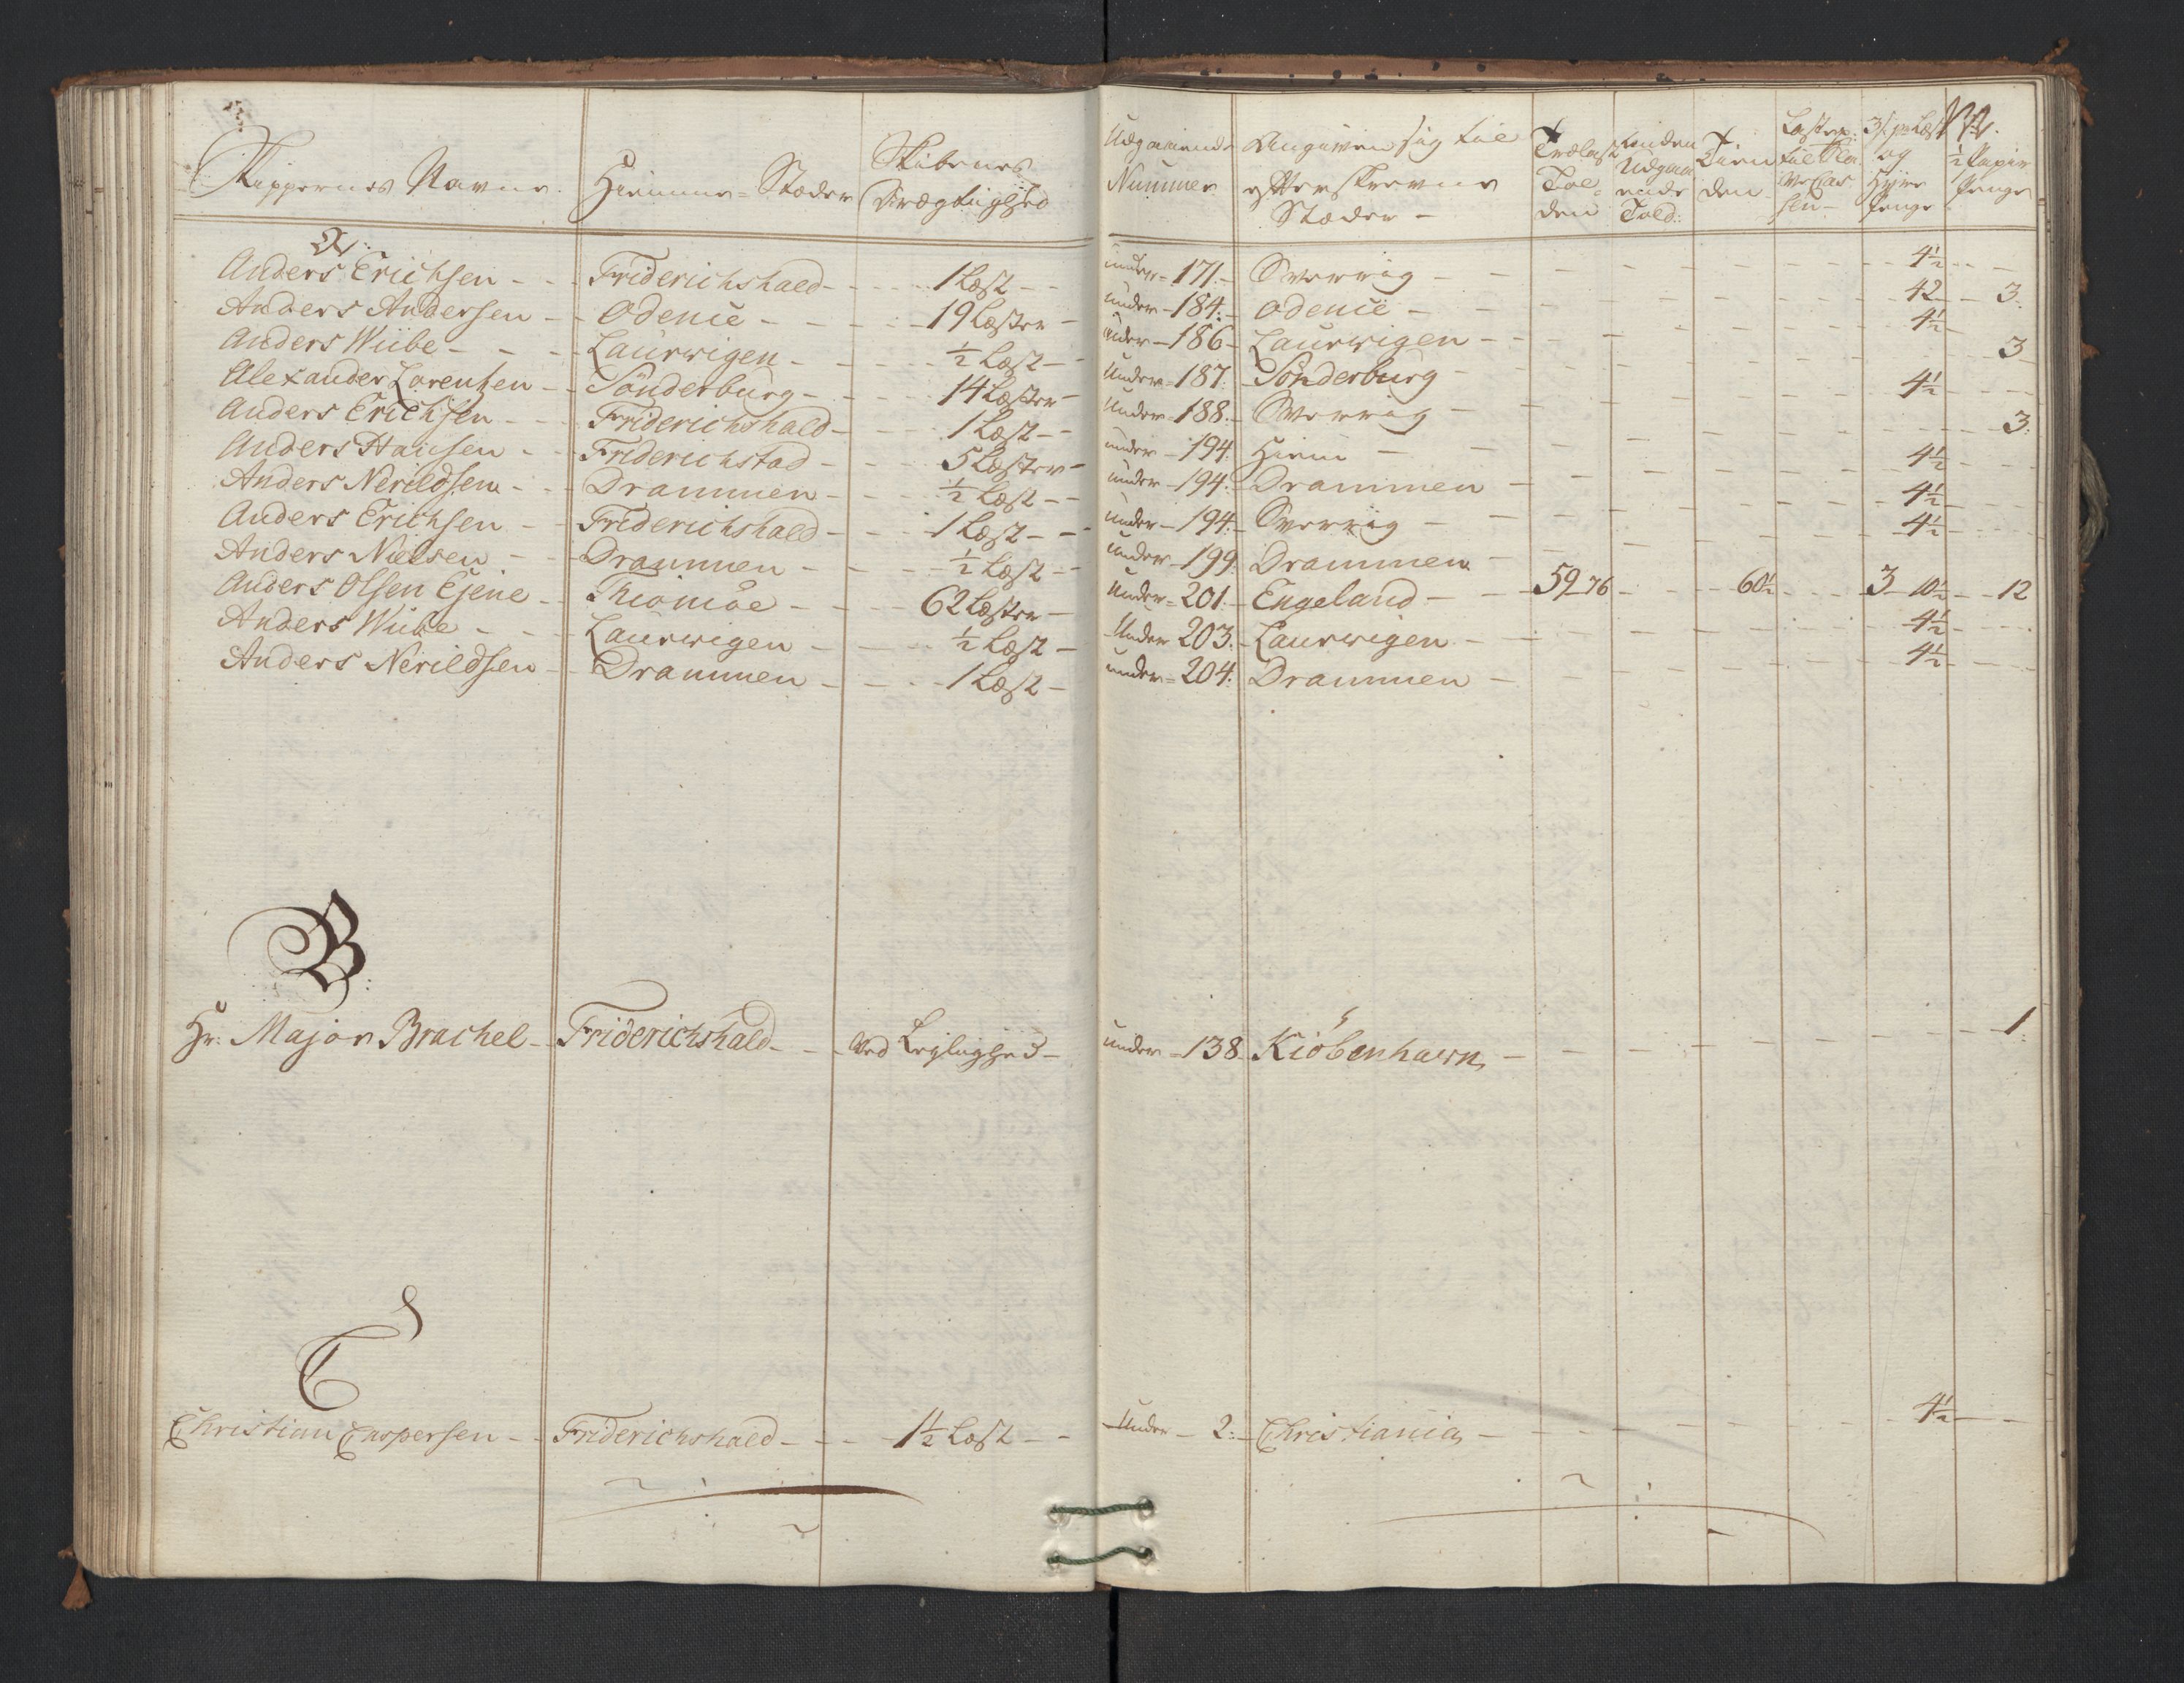 Skippernes Navne. Hiemme-Stæder Skibenes Drægtighed Udgaaende Nummer Angiven sig til efterskrevne Stæder - Trælast Tolden Anden Udgaaende Told: Tienden 3 s. pr Læst og Hyre Penge ½ Papir Penge
A:
Anders Erichsen - - Friderichshald - - 1 Læst - - under - 171. - Sverrig - 4½ - -
Anders Andersen - - Odence - - 19 Læster - under - 184. - Odence - 42 - - 3.
Anders Wiibe - - - Laurwigen - - ½ Læst - under - 186 - Laurwigen - - 4½ -
Alexander Lorentzen - - Sönderburg - - 14 Læster - Under - 187. - Sönderburg - 3
Anders Erichsen - - Friderichshald - - 1 Læst - - Under - 188. - Sverrig - 4½ - -
Anders Hansen - - Friderichstad - - 5 Læster - under - 194. Hiem - - 3.
Anders Nerildsen - - Drammen - - ½ Læst - - under - 194. - Drammen - 4½ - -
Anders Erichsen - - Friderichshald - - 1 Læst - - under - 194. - Sverrig - 4½ - -
Anders Nielsen - - Drammen - - ½ Læst - - under - 199. Drammen - 4½ - -
Anders Olsen Ejene - Thiomöe - - 62 Læster - Under - 201. - Engeland - - 59 - 76 - - 60½ - - 3 - 10½ - - 12
Anders Wiibe - - - Laurwigen - - ½ Læst - Under 203. - Laurwigen - - 4½ - -
Anders Nerildsen - - Drammen - - 1 Læst - under - 204. Drammen - 4½ - -
B:
Hr: Major Brachel - - Friderichshald - - Ved Leylighed - under - 138 - Kiöbenhawn - - 1.
C
Christian Caspersen - - Friderichshald - - 1½ Læst - - Under - 2. - Christiania - - 4½ - -